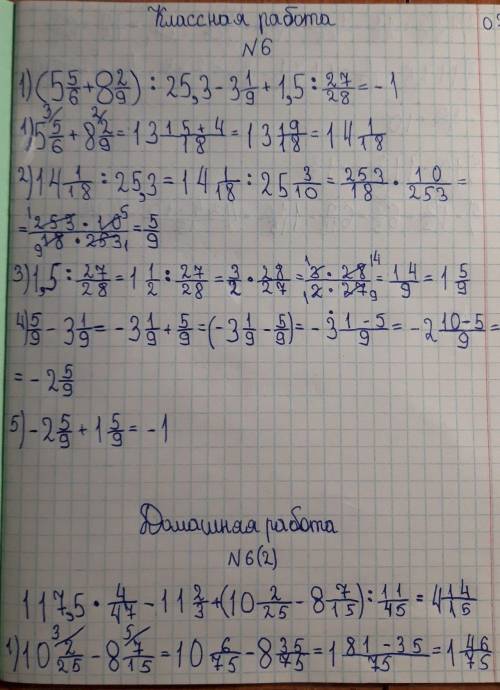 Классная работа
№6
1) (5 5/6 + 8 2/9) : 25,3 - 3 1/9 + 1,5 : 27/28 = -1
1) 5 5/6 + 8 2/9 = 13 15+4/18 = 13 19/18 = 14 1/18
2) 14 1/18 : 25,3 = 14 1/18 : 25 3/10 = 253/18 · 10/253 =
= 253 · 10/18 · 253 = 5/9
3) 1,5 : 27/28 = 1 1/2 : 27/28 = 3/2 · 28/27 = 3 · 28/2 · 27 = 14/9 = 1 5/9
4) 5/9 - 3 1/9 = -3 1/9 + 5/9 = (-3 1/9 - 5/9) = -3 1-5/9 = -2 10-5/9 =
= -2 5/9
5) -2 5/9 + 1 5/9 = -1
Домашная работа
№6(2)
117,5 · 4/47 - 11 2/3 + (10 2/25 - 8 7/15) : 11/45 = 4 14/15
1) 10 2/25 - 8 7/15 = 10 6/75 - 8 35/75 = 1 81-35/75 = 1 46/75